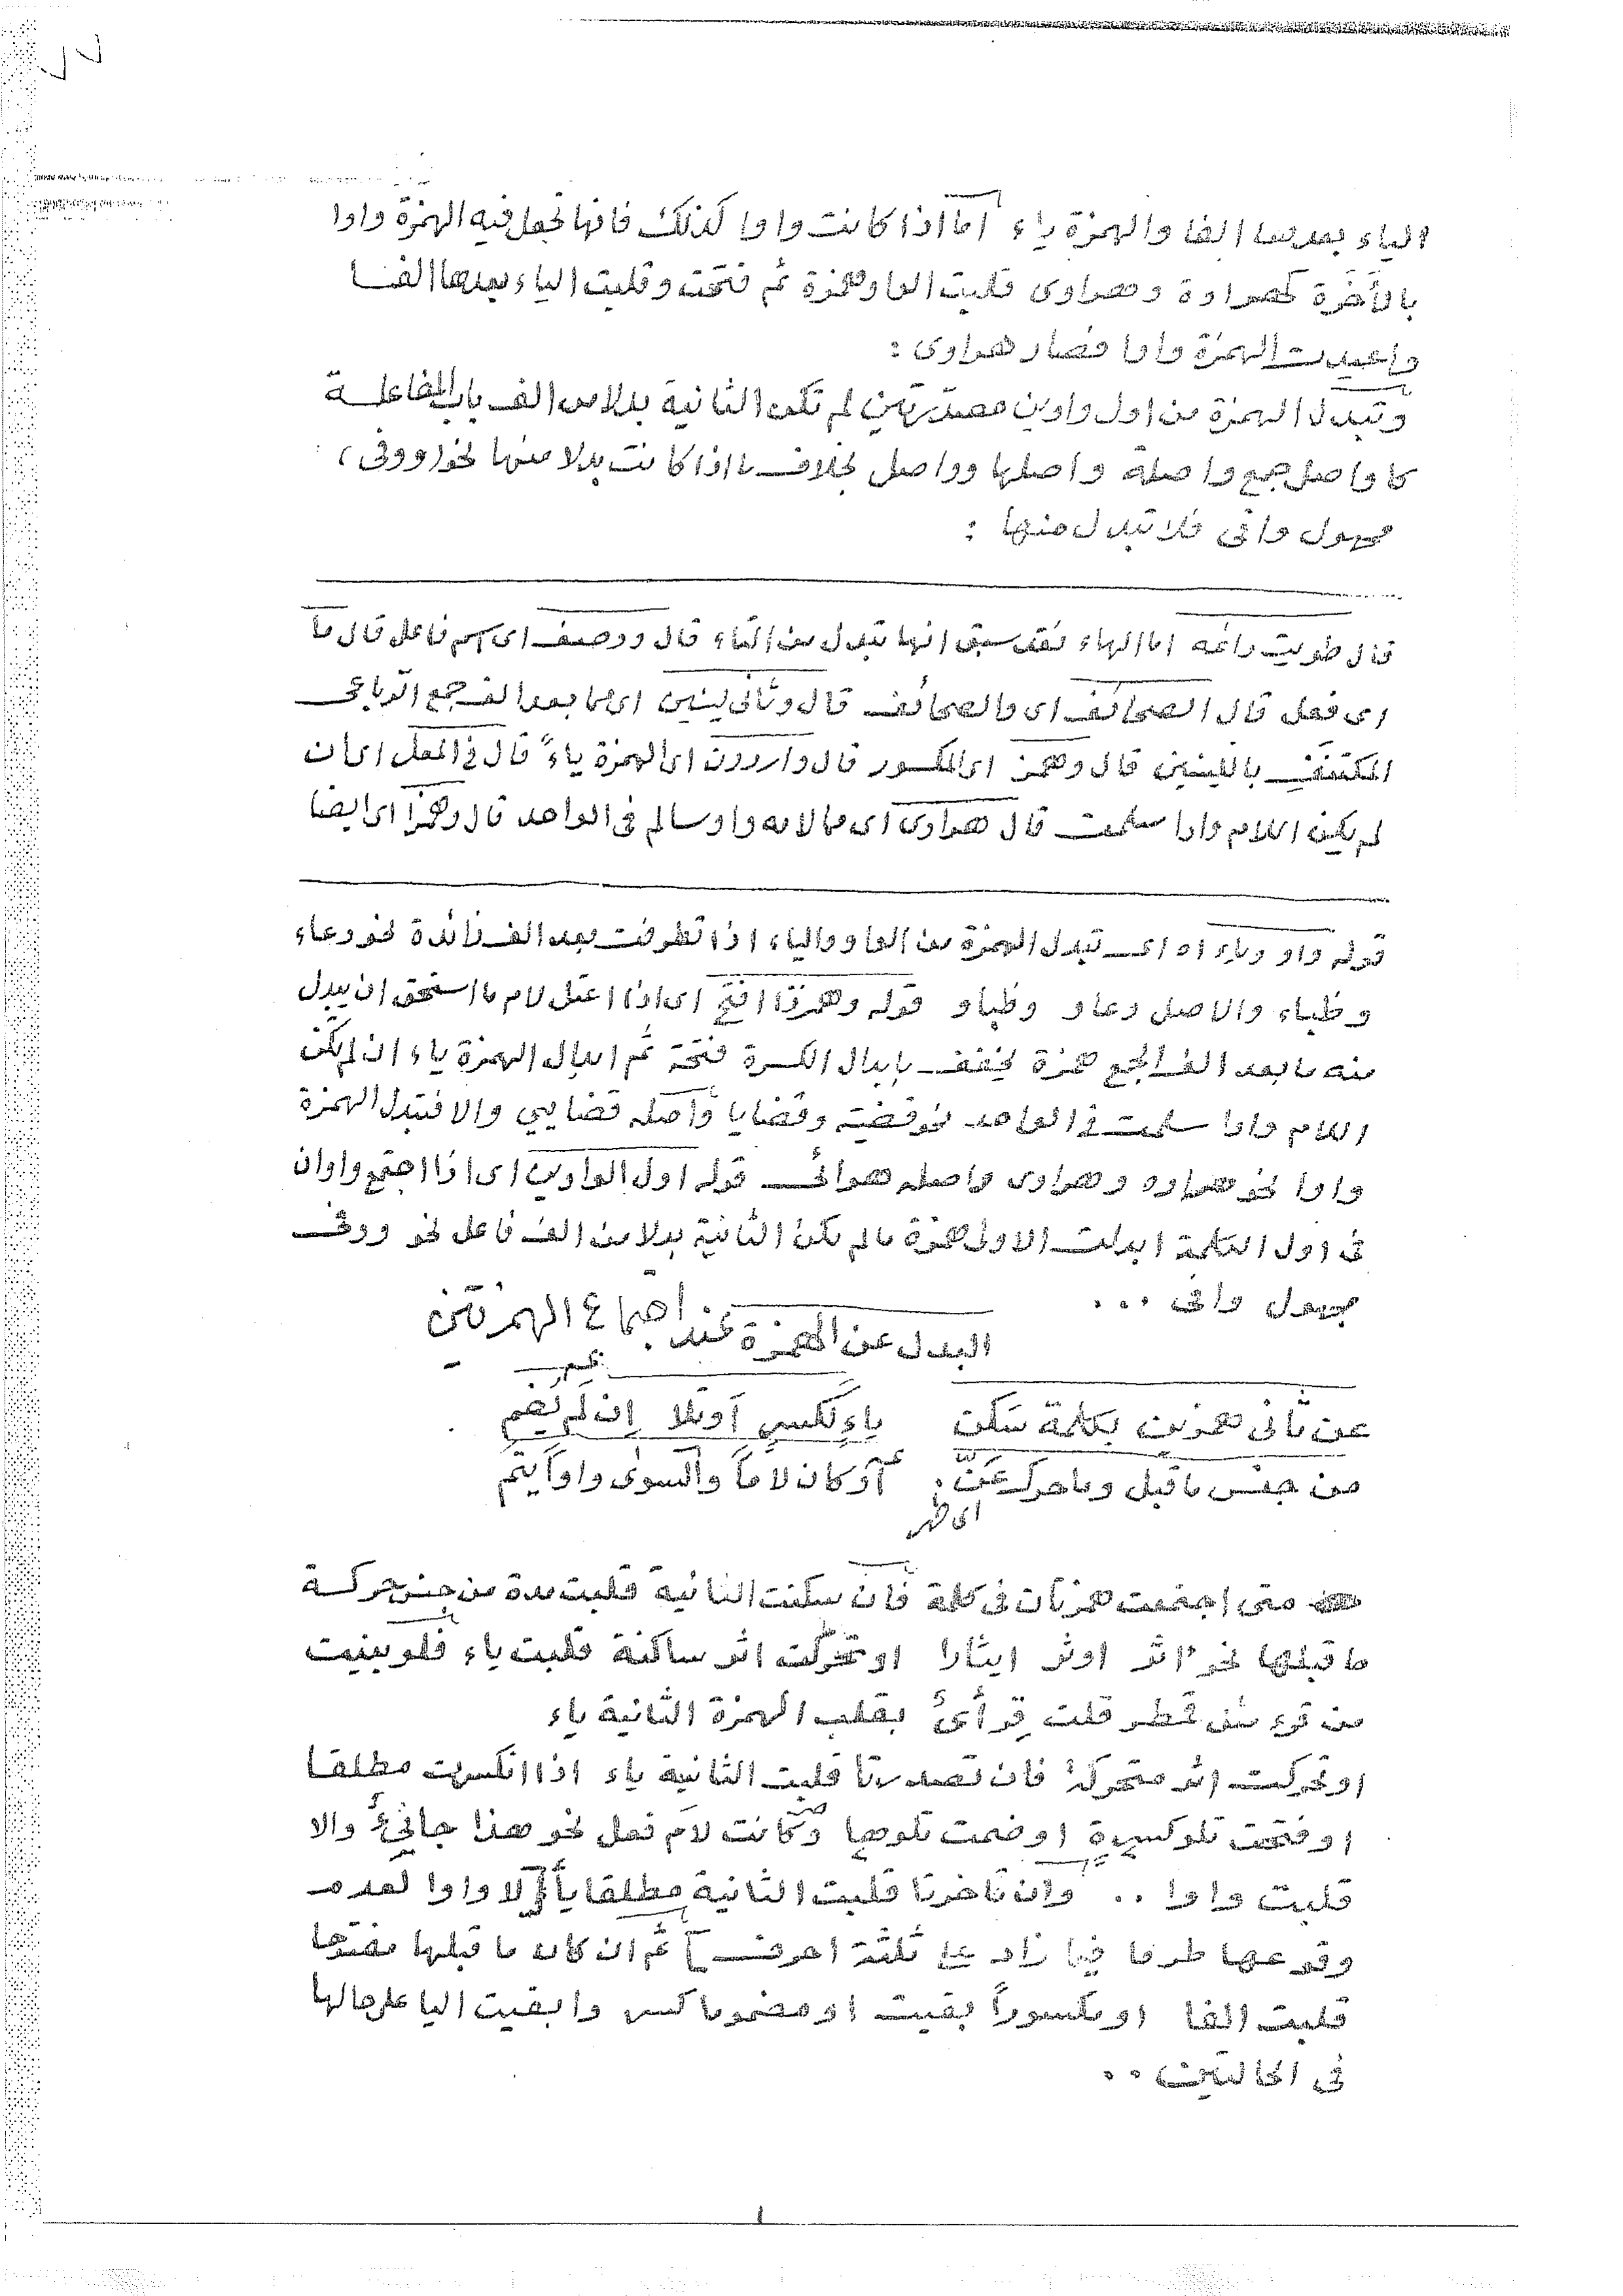 الياء بعدها الفا والهمزة ياء اما اذا كانت واوا كذلك فانها تجعل فيه الهمزة واوا
بالأخرة كهراوة وهراوى قلبت الواو همزة ثم فتحت وقلبت الياء بعدها الفا
واعيدت الهمزة واوا فصار هراوى :
وتبدل الهمزة من اول واوين مصدرتين لم تكن الثانية بدلا من الف باب المفاعلة
كاواصل جمع واصلة واصلها وواصل بخلاف ما اذا كانت بدلا منها نحو (ووفى،
مجهول وافى فلا تبدل منها :
قال طويت رائمه اما الهاء فقد سبق انها تبدل من التاء قال ووصف اى اسم فاعل قال ما
اى فعل قال الصحائف اى والصحائف قال وثانى لينين اى مما بعد الف جمع الرباعى
المكتنف بالليّنين قال وهمز اى المكسور قال وارددن اى الهمزة ياءً قال فى المعل اى ان
لم يكن اللام واوا سلمت قال هراوى اى مما لامه واو سالم فى الواحد قال وهمزا اى ايضا
قوله واو وياء اه اى تبدل الهمزة من الواو والياء اذا تطرفت بعد الف زائدة نحو دعاء
وظباء والاصل دعاو وظباو قوله وهمزا افتح اى اذا اعتل لام ما استحق ان يبدل
منه ما بعد الف الجمع همزة يخفف بابدال الكسرة فتحة ثم ابدال الهمزة ياء ان لم تكن
اللام واوا سلمت فى الواحد نحو قضية وقضايا واصله قضايي والا فتبدل الهمزة
واوا نحو هراوه وهراوى واصله هرائى قوله اول الواوين اى اذا اجتمع واوان
فى اول الكلمة ابدلت الاولى همزة ما لم تكن الثانية بدلا من الف فاعل نحو ووفى
مجهول وافى ...
البدل عن الهمزة عند اجتماع الهمزتين
عن ثانى همزين بكلمة سكن ياء لكسر أو تلا إن لم يضم
من جنس ما قبل وما حرك عنّ. أو كان لاماً والسوى واواً يتم
اى ظهر
متى اجتمعت همزتان فى كلمة فان سكنت الثانية قلبت مدة من جنس حركة
ما قبلها نحو آثر اوثر ايثارا او تحركت اثر ساكنة قلبت ياء فلو بنيت
من قرء مثل قمطر قلت قِرأىٌ بقلب الهمزة الثانية ياء
او تحركت اثر متحركة فان تصدرتا قلبت الثانية ياء اذا انكسرت مطلقا
او فتحت تلو كسرة او ضمت تلوها وكانت لام فعل نحو هذا جائىٌ والا
قلبت واوا .. وان تاخرتا قلبت الثانية مطلقا ياأً لا واوا لعدم
وقوعها طرفا فيما زاد على ثلثة احرف ثم ان كان ما قبلها مفتوحا
قلبت الفا او مكسوراً بقيت او مضموما كسر وابقيت اليا على حالها
فى الحالتين ..